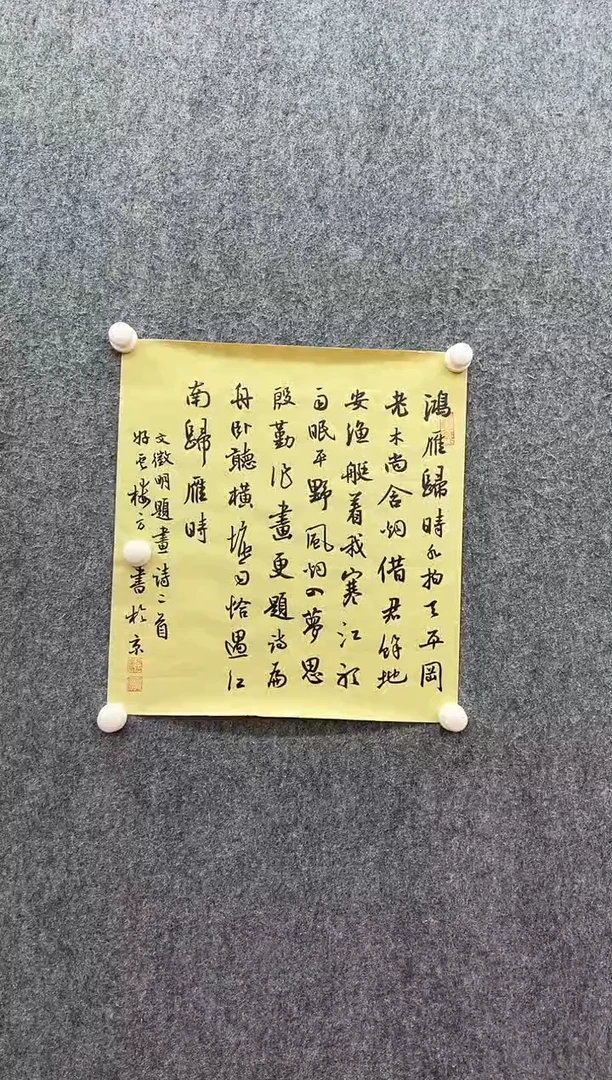 鴻雁歸時水拍天平岡
老木尚含烟借君餘地
安漁艇着我寒江聽
雨眠平野風烟入夢思
殷勤作畫更題詩扁
舟卧聽橫塘雨恰遇江
南歸雁時
文徵明題畫詩二首
好雲樓方書於京